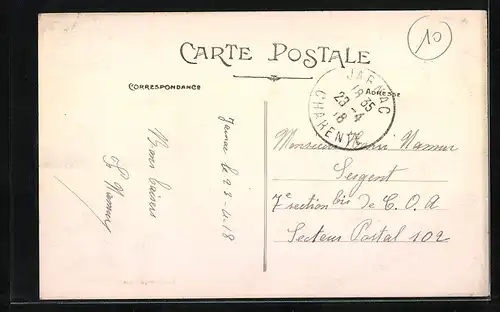 10
CARTE POSTALE
CORRESPONDANCE
ADRESSE
JARNAC
18 35
23-4
18
CHARENTE
Jarnac le 23-4-18
Bons baisers
Monsieur Henri
Sergent
7e section bis de C.O.A
Secteur Postal 102